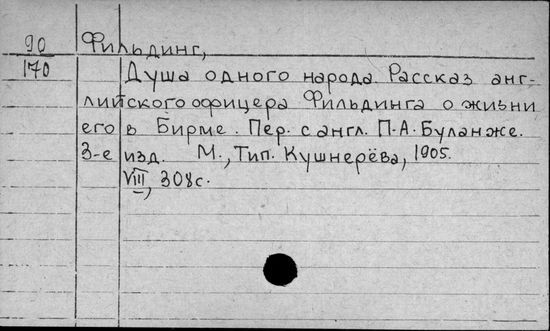 90 Фильдинг,
170 Душа одного народа. Рассказ анг-
лийского офицера Фильдинга о жизни
его в Бирме. Пер. с англ. П.А. Буланже.
3-е изд. М., Тип. Кушнерёва, 1905.
VIII, 308с.